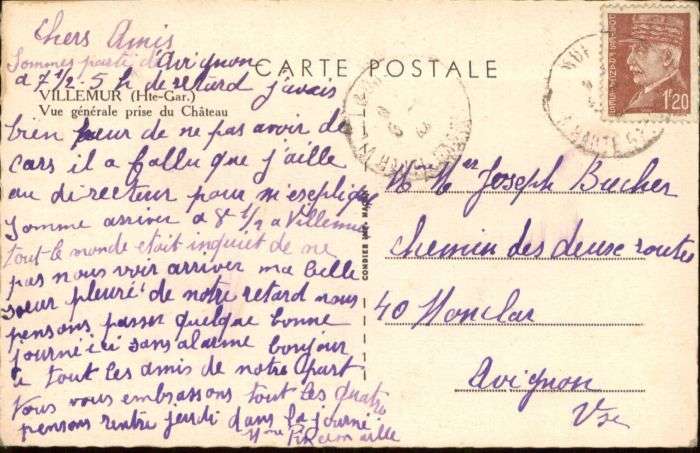 Chers Amis
Sommes parti d'Avignon
a 7 1/2 5 h de retard j'avais
bien peur de ne pas avoir de
cars il a fallu que j'aille
au directeur pour m'esplique
somme arriver a 8 1/2 a Villemur
tout le monde etait inquiet de ne
pas nous voir arriver ma belle
soeur pleuré de notre retard nous
pensons passer quelque bonne
journé ici sans alarme bonjour
a tout les amis de notre part
Vous vous embrassons tout les quatre
pensons rentre jeudi dans la journé
Mme
CARTE POSTALE
VILLEMUR (Hte-Gar.)
Vue générale prise du Château
1f20
M Mer Joseph Bucher
Chemin des deuse routes
40 Monclar
Avignon
Vse